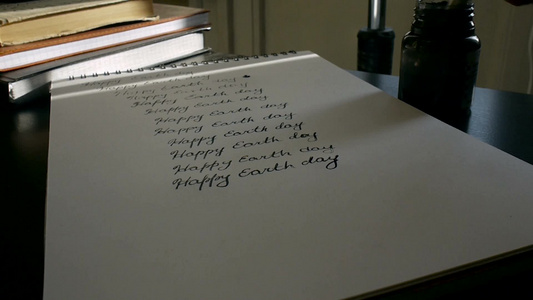 Happy Earth day
Happy Earth day
Happy Earth day
Happy Earth day
Happy Earth day
Happy Earth day
Happy Earth day
Happy Earth day
Happy Earth day
Happy Earth day